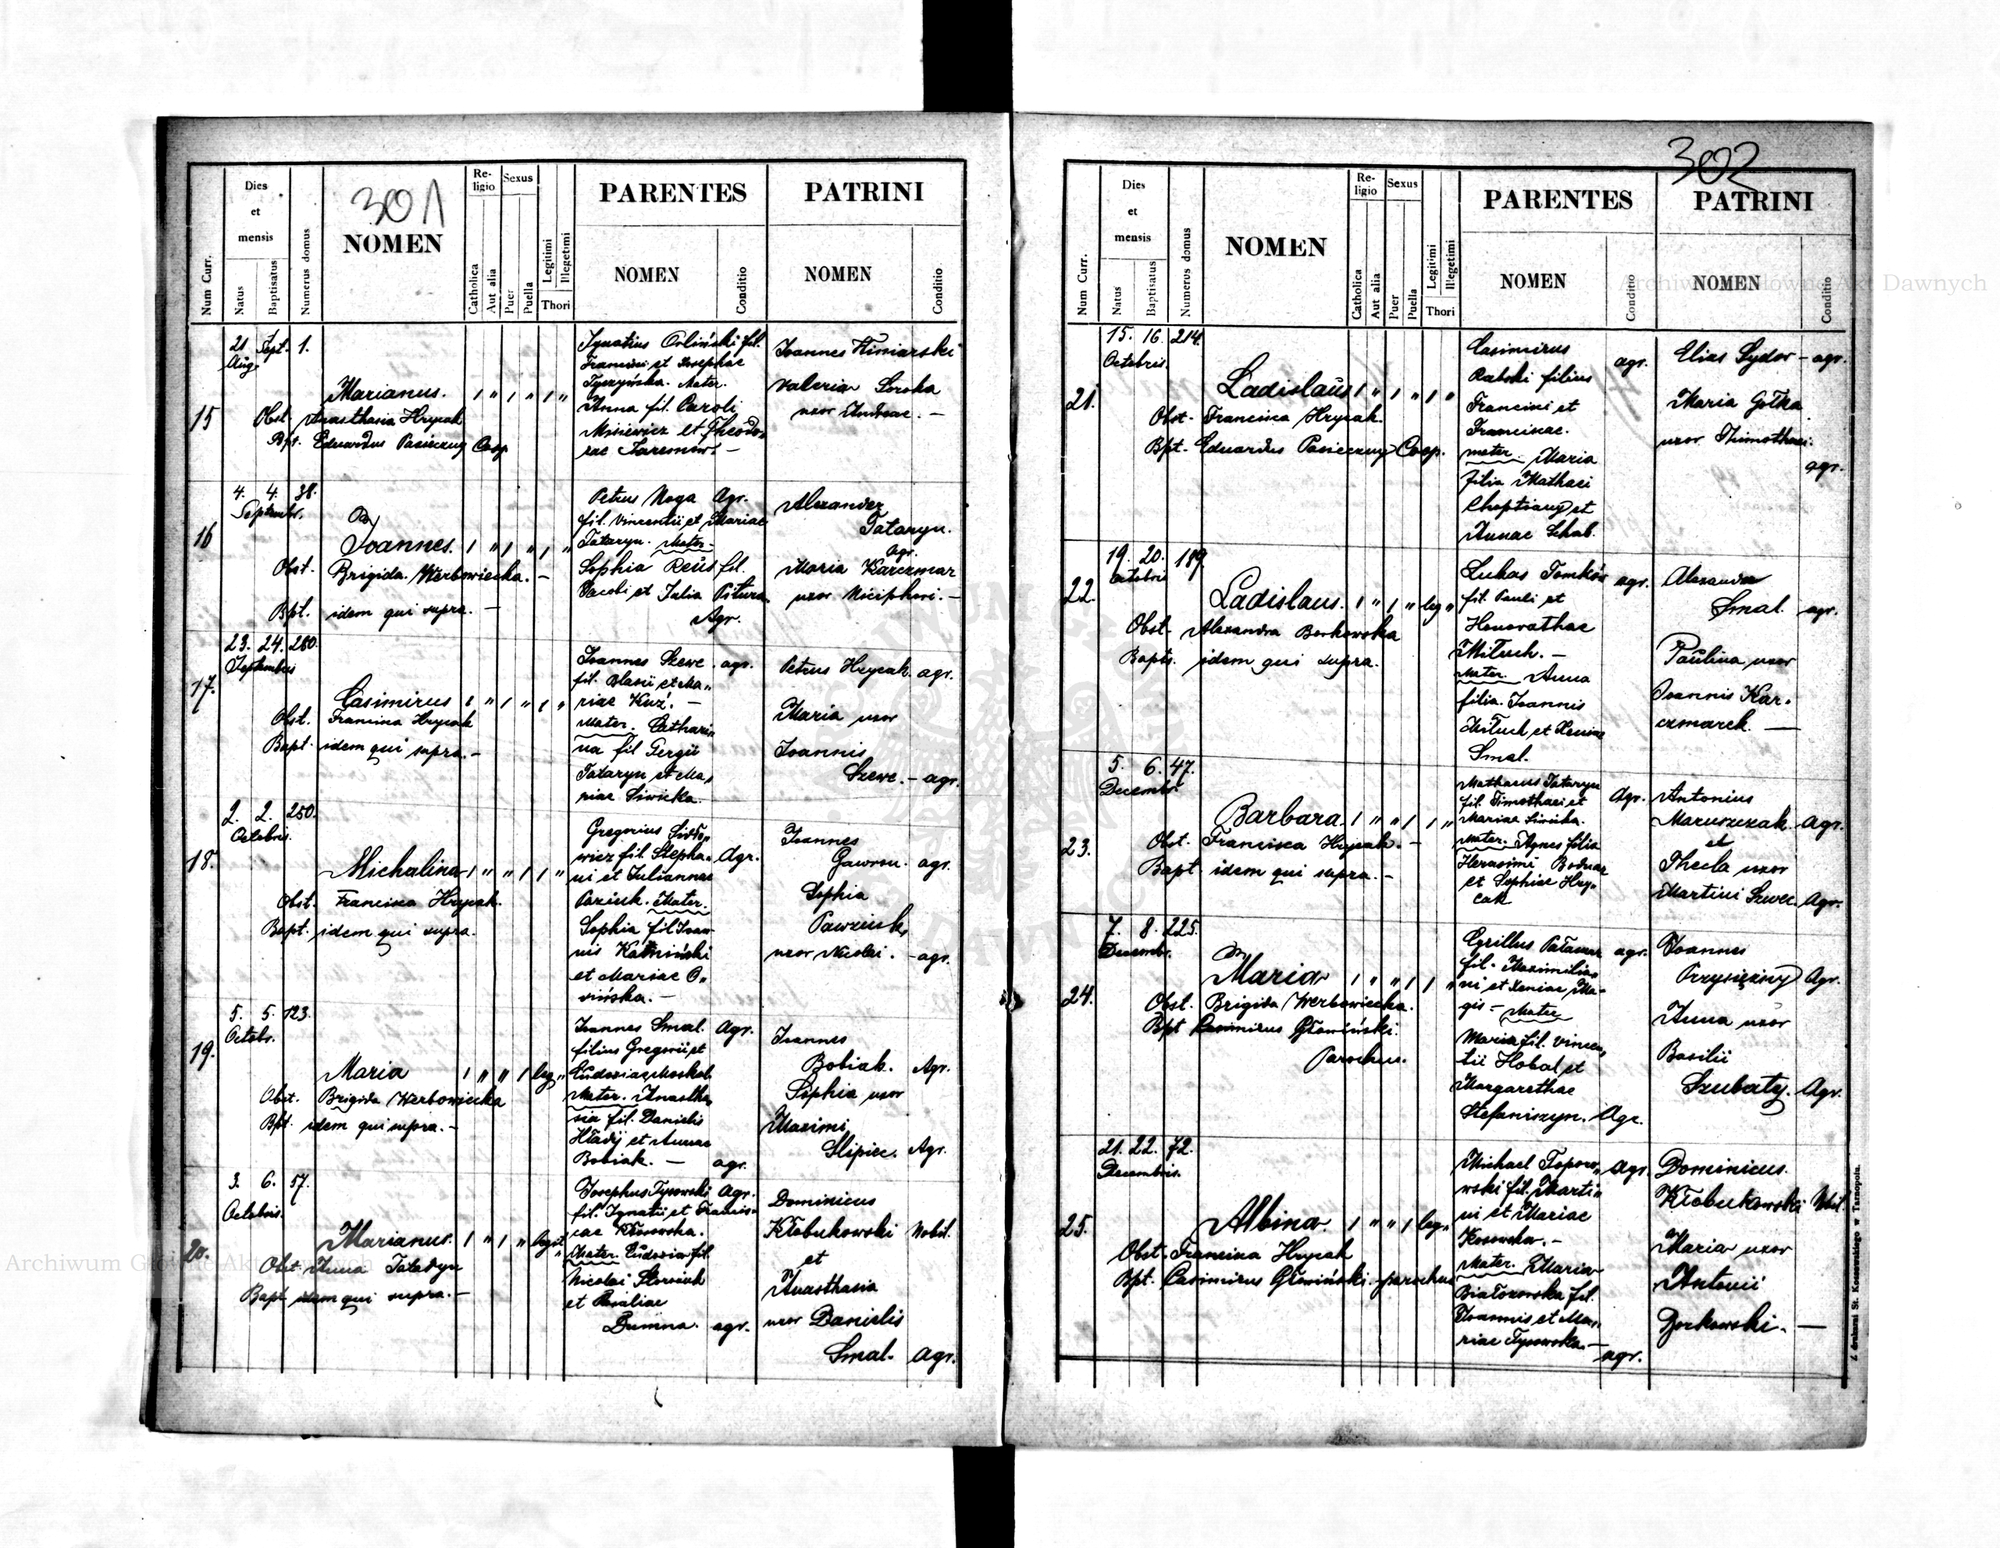 301
Num Curr.
Dies
et
mensis
Natus
Baptisatus
Numerus domus
NOMEN
Religio
Catholica
Aut alia
Sexus
Puer
Puella
Legitimi
Illegetimi
Thori
PARENTES
NOMEN
Conditio
PATRINI
NOMEN
Conditio
15
21 Sept. 1.
Aug.
Marianus. 1 " 1 " 1 "
Obst. Anasthasia Hrycak
Bpt. Eduardus Pasieczny Coop.
Ignatius Orliński fil.
Francisci et Josephae
Tyszyńska. Mater.
Anna fil. Caroli
Misiewicz et Theodo-
rae
Joannes Winiarski
Valeria Soroka
uxor Andreae. —
16
4. 4. 38.
Septembr.
Joannes. 1 " 1 " 1 "
Obst. Brigida Werbowiecka. —
Bpt. idem qui supra. —
Petrus Noga Agr.
fil. Vincentii et Mariae
Tataryn. Mater.
Sophia Reus fil.
Jacobi et Julia Pitura
Agr.
Alexander
Tataryn.
Agr.
Maria Karczmar
uxor Niciphori. —
17.
23. 24. 280.
Septembris
Casimirus 1 " 1 " 1 "
Obst. Francisca Hrycak
Bapt. idem qui supra. —
Joannes Szewc. agr.
fil. Blasii et Ma„
riae Kuź. —
Mater. Cathari„
na fil Gergii
Tataryn et Ma„
riae Siwicka.
Petrus Hrycak. agr.
Maria uxor
Joannis
Szewc. — agr.
18.
2. 2. 250.
Octobris.
Michalina 1 " " 1 1 "
Obst. Francisca Hrycak.
Bapt. idem qui supra.
Gregorius
wicz fil. Stepha„ Agr.
ni et Juliannae
Paziuk. Mater.
Sophia fil Joan„
nis Kamiński
et Mariae O„
vińska. —
Joannes
Gawron. agr.
Sophia
Pawziuk,
uxor Nicolai. — agr.
19.
5. 5. 123.
Octobr.
Maria 1 " " 1 leg "
Obst. Brigida Werbowiecka
Bpt. idem qui supra. —
Joannes Smal. Agr.
filius Gregorii et
Eudosiae Moskal.
Mater. Anastha„
sia fil. Danielis
Hładij et Annae
Bobiak. — agr.
Joannes
Bobiak. Agr.
Sophia uxor
Maximi
Slipiec. Agr.
20.
3. 6. 57.
Octobris.
Marianus. 1 " 1 " legit "
Obst. Anna Tatadyn
Bapt. idem qui supra. —
Josephus Tysowski Agr.
fil. Ignatii et Francis„
cae Kłosowska.
Mater. Eudosia fil.
Nicolai
et Rosaliae
Dumna. agr.
Dominicus
Kłobukowski Nobil.
et
Anasthasia
uxor Danielis
Smal. Agr.
302
Num Curr.
Dies
et
mensis
Natus
Baptisatus
Numerus domus
NOMEN
Religio
Catholica
Aut alia
Sexus
Puer
Puella
Legitimi
Illegetimi
Thori
PARENTES
NOMEN
Conditio
PATRINI
NOMEN
Conditio
21.
15. 16. 214.
Octobris.
Ladislaus 1 " 1 " 1 "
Obst. Francisca Hrycak.
Bpt. Eduardus Pasieczny Coop.
Casimirus agr.
Rabski filius
Francisci et
Franciscae.
mater. Maria
filia Mathaei
Choptiany et
Annae Schab.
Elias Sydor — agr.
Maria Gołka
uxor Thimothaei.
agr.
22.
19. 20. 189.
Octobris
Ladislaus. 1 " 1 " leg "
Obst. Alexandra Borkowska
Bapts. idem qui supra.
Lukas Tomków agr.
fil. Pauli et
Honorathae
Mituch. —
Mater. Anna
filia Joannis
Mituch et Xeniae
Smal.
Alexander
Smal. agr.
Paulina uxor
Joannis Kar„
czmarek. —
23.
5. 6. 47.
Decembr.
Barbara. 1 " " 1 1 "
Obst. Francisca Hrycak. —
Bapt idem qui supra. —
Mathaeus Tataryn Agr.
fil. Timothaei et
Mariae Siwicka.
Mater. Agnes filia
Herasimi Bodnar
et Sophiae Hry„
cak
Antonius
Maruszczak. Agr.
et
Thecla uxor
Martini Szwec. Agr.
24.
7. 8. 225.
Decembr.
Maria 1 " " 1 1 "
Obst. Brigida Werbowiecka.
Bpt Casimirus Głowiński.
Parochus.
Cyrillus Pałamar agr.
fil. Maximilia„
ni et Xeniae Ma-
gis — Mater
Maria fil. Vincen„
tii Hobal et
Margarethae
Stefaniszyn. Agr.
Joannes
Przysiężny Agr.
Anna uxor
Basilii
Szubaty. Agr.
25.
21. 22. 72.
Decembris.
Albina 1 " " 1 leg "
Obst. Francisca Hrycak
Bpt. Casimirus Głowiński — parochus
Michael Topow„ Agr.
wski fil. Marti„
ni et Mariae
Kosowska. —
Mater. Maria
Białozowska fil.
Joannis et Ma„
riae Tysowska. —
agr.
Dominicus
Kłobukowski Nobil
Maria uxor
Antonii
Borkowski. —
Z drukarni St. Kossowskiego w Tarnopolu.
Archiwum Główne Akt Dawnych
Archiwum Główne Akt Dawnych